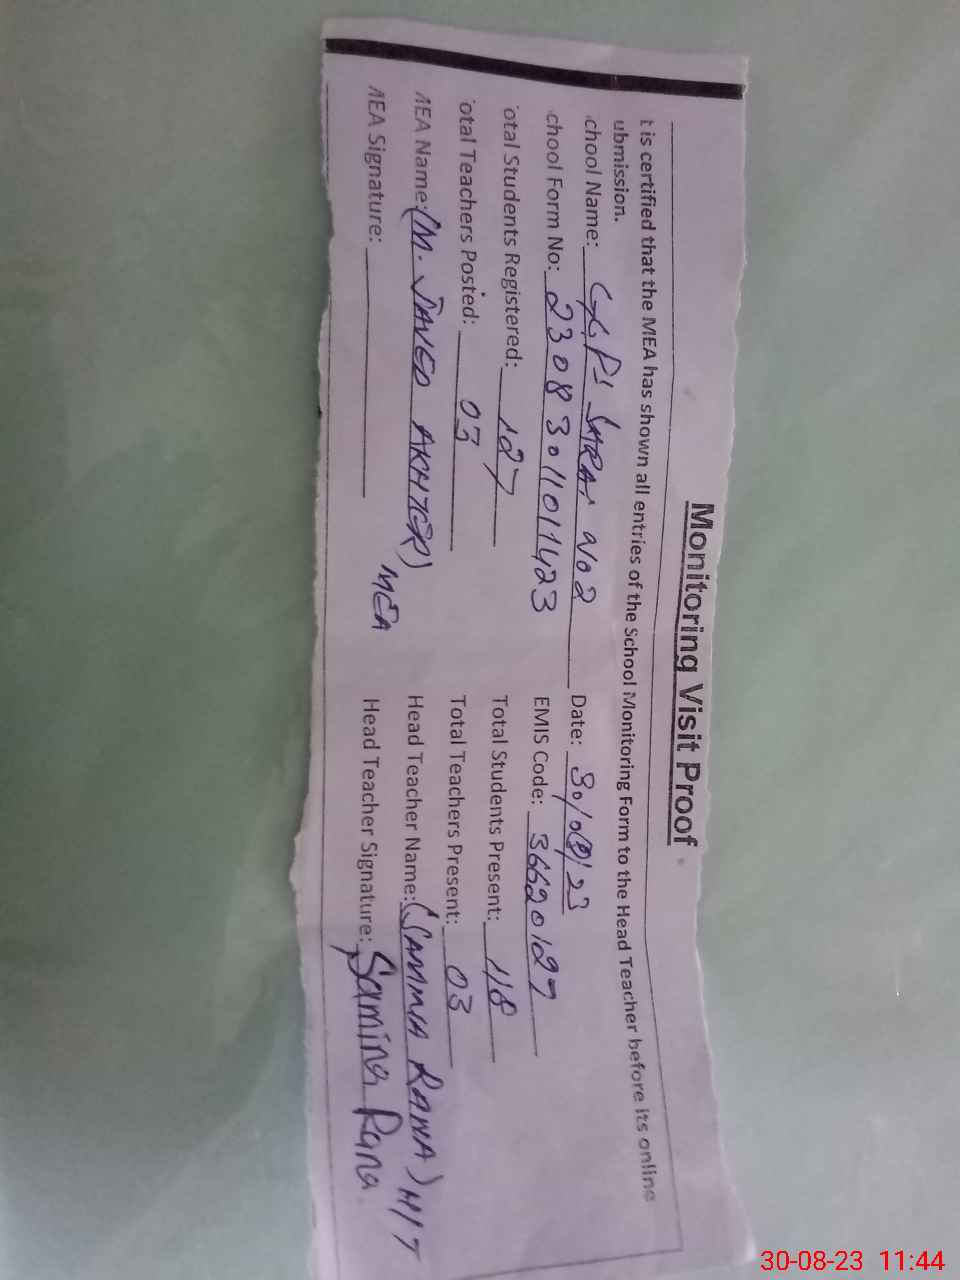 Monitoring Visit Proof
t is certified that the MEA has shown all entries of the School Monitoring Form to the Head Teacher before its online
ubmission.
chool Name: GPS SARAI No 2 Date: 30/08/23
chool Form No: 2308301101423 EMIS Code: 36620127
otal Students Registered: 127 Total Students Present: 118
otal Teachers Posted: 03 Total Teachers Present: 03
MEA Name: (M. JAVED AKHTER) MEA Head Teacher Name: (SAMINA RANA) H/T
MEA Signature: Head Teacher Signature: Samina Rana
30-08-23 11:44